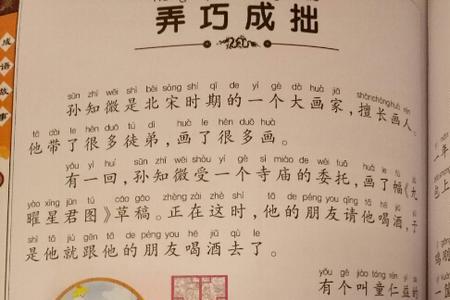 弄巧成拙
成语故事
sūn zhī wēi shì běi sòng shí qī de yí gè dà huà jiā shàn cháng huà rén
孙知微是北宋时期的一个大画家，擅长画人。
tā dài le hěn duō tú dì huà le hěn duō huà
他带了很多徒弟，画了很多画。
yǒu yì huí sūn zhī wēi shòu yí gè sì miào de wěi tuō huà le fú jiǔ
有一回，孙知微受一个寺庙的委托，画了幅《九
yào xīng jūn tú cǎo gǎo zhèng zài zhè shí tā de péng you qǐng tā hē jiǔ yú
曜星君图》草稿。正在这时，他的朋友请他喝酒，于
shì tā jiù gēn tā de péng you hē jiǔ qù le
是他就跟他的朋友喝酒去了。
yǒu gè jiào tóng rén
有个叫童仁益的
一年
包上